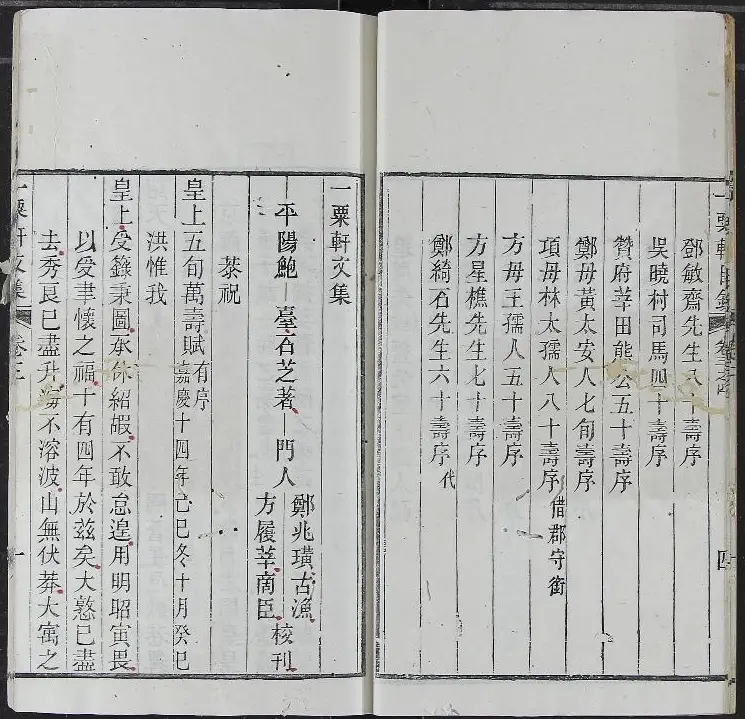 鄧敏齋先生八十壽序
吳曉村司馬四十壽序
贊府莘田熊公五十壽序
鄭母黃太安人七旬壽序
項母林太孺人八十壽序 借郡守銜
方母王孺人五十壽序
方星樵先生七十壽序
鄭綺石先生六十壽序 代
四
一粟軒文集
平陽鮑臺石芝著 門人
鄭兆璜古漁
方履莘商臣
校刊
恭祝
皇上五旬萬壽賦 有序 嘉慶十四年己巳冬十月癸巳
洪惟我
皇上受籙秉圖承休紹嘏不敢怠遑用明昭寅畏
以愛聿懷之福十有四年於茲矣大憝已盡
去秀良已盡升澇不溶波山無伏莽大寓之
一粟軒文集
卷三
一